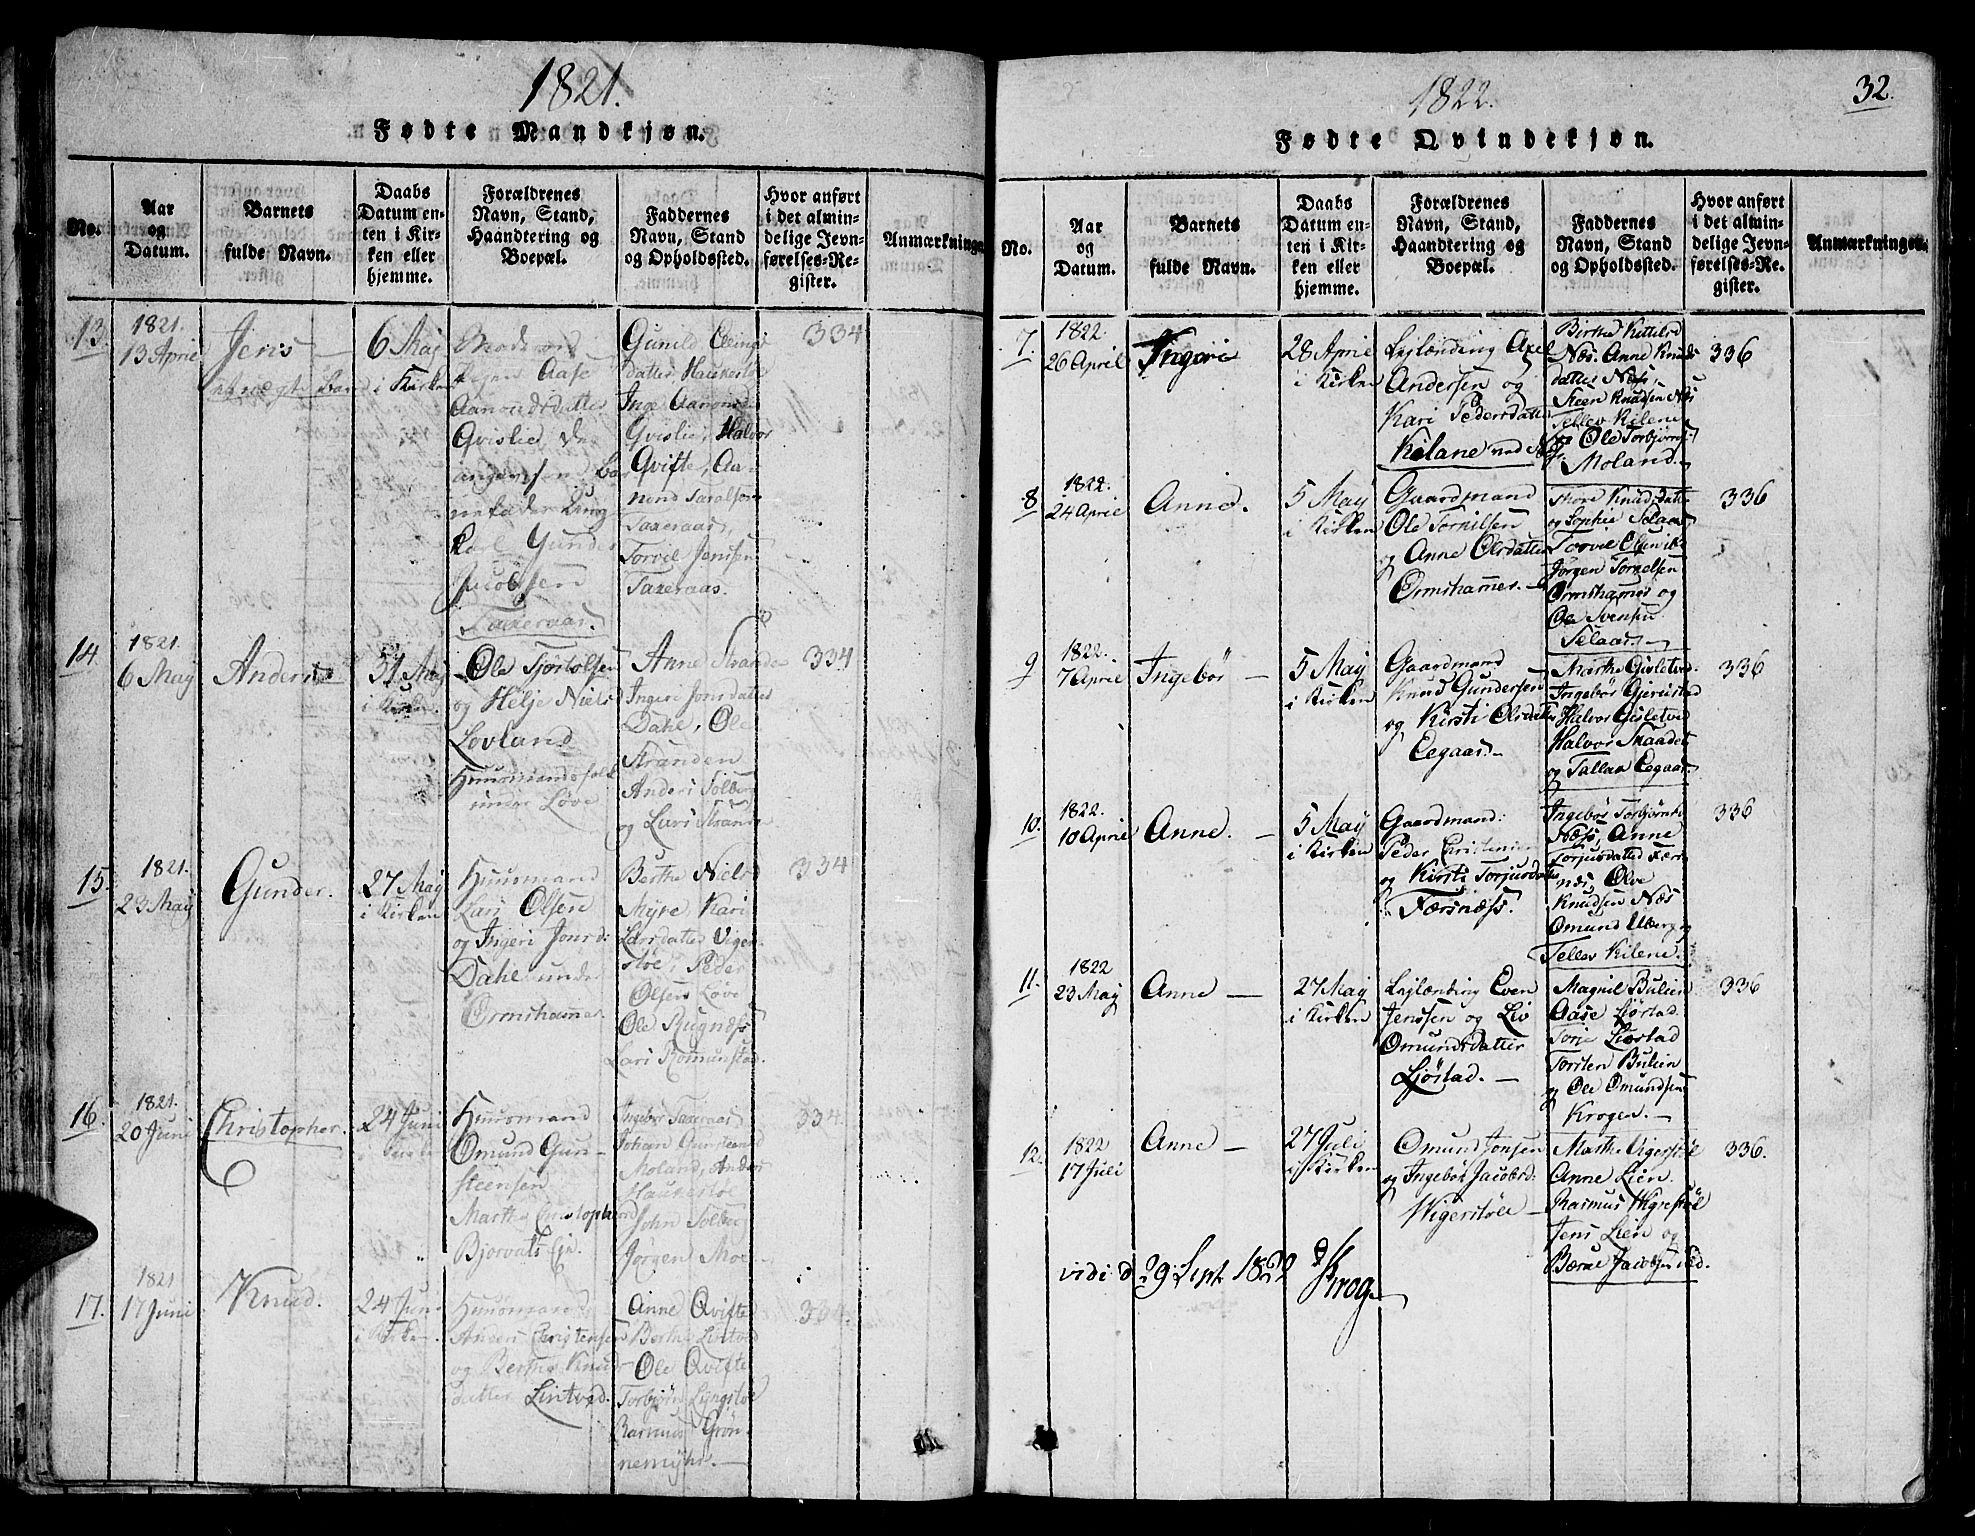 1821.
Fødte Mandkjøn.
No.
Aar
og
Datum.
Barnets
fulde Navn.
Daabs
Datum en-
ten i Kir-
ken eller
hjemme.
Forældrenes
Navn, Stand,
Haandtering og
Boepæl.
Faddernes
Navn, Stand
og Opholdssted.
Hvor anført
i det almin-
delige Jevn-
førelses-Re-
gister.
Anmærkninger.
13
1821.
13 April
Jens
uægte Barn
6 Maj
i Kirken
Aase
Aanondsdatter
Qvislie, den
Karl Gunder
Jacobsen
Taxeraas.
Gunild Ellings
datter Haukestø
Inge Aanonds
Qvislie, Halvor
Qvifte, Aa-
nond Taralsen
Taxeraas,
Torvil Jensen
Taxeraas.
334
14.
1821.
6 May
Anders
31 May
i Kirken
Ole Tjostolsen
og Helje Niels
Lovland
Huusmandsfolk
under Løve
Anne Stranden
Ingeri Jonsdatter
Dahl, Ole
Stranden
Anders Solberg
og Lars Strand
334
15.
1821.
23 May
Gunder.
27 May
i Kirken
Huusmand
Lars Olsen
og Ingeri Jonsd:
Dahl under
Ormshamer
Berthe Nielsd
Myre Kari
Larsdatter Viger-
støe, Peder
Olsen Løve
Ole Rugnæss
Lars Romunstad.
334
16.
1821.
20 Juni
Christopher.
24 Juni
i Kirken
Huusmand
Omund Gun-
steensen
Marthe Christophersd
Bjorvats Eje.
Ingebør Taxeraas
Johan Gunsteensd
Moland, Anders
Haukestøe
John Solberg
Jørgen Moe
334.
17.
1821
17 Juni
Knud.
24 Juni
i Kirken.
Huusmand
Anders Christensen
og Berthe Knuds
datter Lintved.
Anne Qvifte
Berthe Lintved
Ole Qvifte
Torbjørn Lyngstøe
Rasmus Grøn-
nemyhr.
334.
1822.
32.
Fødte Qvindekjøn.
No.
Aar
og
Datum.
Barnets
fulde Navn.
Daabs
Datum en-
ten i Kir-
ken eller
hjemme.
Forældrenes
Navn, Stand,
Haandtering og
Boepæl.
Faddernes
Navn, Stand
og Opholdssted.
Hvor anført
i det almin-
delige Jevn-
førelses-Re-
gister.
Anmærkninger.
7.
1822.
26 April
Ingeri
28 April
i Kirken
Lejlænding Axel
Andersen og
Kari Pedersdatter
Kilane ved Næs
Birthe Kittelsd
Næs. Anne Knuds
datter Næs,
Steen Knudsen Næs
Tellev Kilene
og Ole Torbjørns:
Moland.
336
8
1822.
24 April
Anne.
5 May
i Kirken
Gaardmand
Ole Torkilsen
og Anne Olsdatter
Ormshamer.
Thore Knudsdatter
og Sophie Selaas
Torvil Olsen ibd
Jørgen Torgelsen
Ormshamer og
Ole Svensen
Selaas.
336
9
1822.
7 April
Ingebør
5 May
i Kirken
Gaardmand
Knud Gundersen
og Kirsti Olsdatter
Eegaas.
Marthe Gisletved.
Ingebør Gjerustad
Halvor Gisletved
Halvor Skaadet
og Tallax Eegaas.
336
10.
1822.
10 April
Anne.
5 May
i Kirken
Gaardmand:
Peder Christensen
og Kirsti Torjusdatter
Færsnæss.
Ingebør Torbjørnsd
Næss, Anne
Torjusdatter Færs
næs, Olve
Knudsen Næs
Omund Uberg og
Tellev Kilene.
336
11.
1822
23 May
Anne
27 May
i Kirken
Lejlænding Even
Jenssen og Liv
Omundsdatter
Ljøstad.
Magnil Bulien
Aase Ljøstad
Torje Ljøstad
Torsten Bulien
og Ole Omundsen
Krogen.
336
12.
1822
17 Juli
Anne
27 Juli
i Kirken
Omund Jonsen
og Ingebør Jacobsd:
Wigerstøle
Marthe Vigerstøl
Anne Lien.
Rasmus Wigrestøl
Jens Lien og
Børne Jacobsen ibd.
336.
vidi d. 29 Sept 1822
Krog.